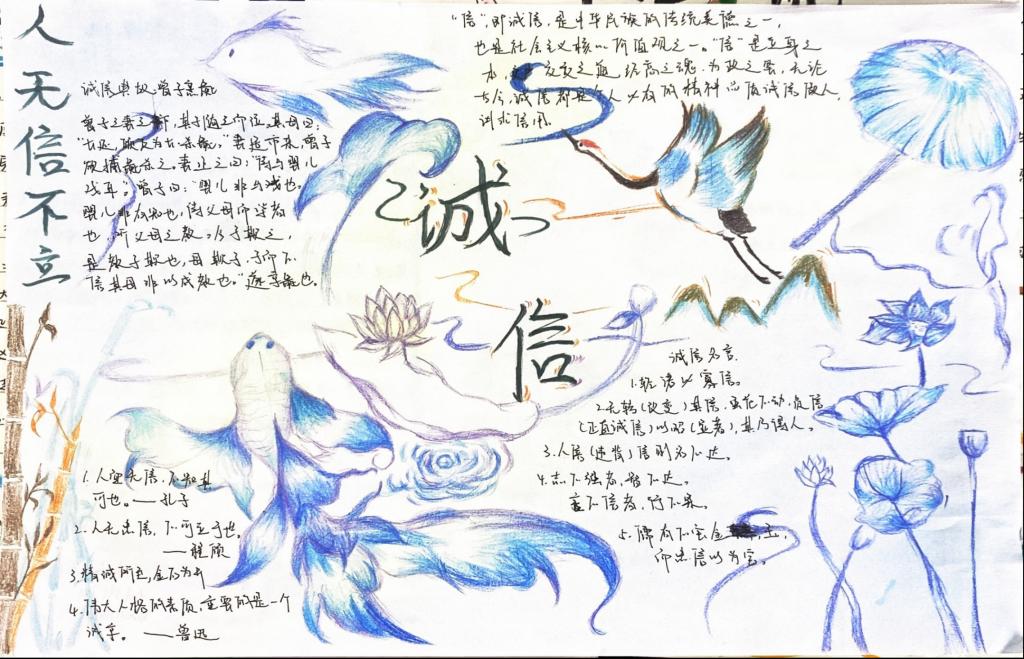 人无信不立
"信",即诚信,是中华民族的传统美德之一,
也是社会主义核心价值观之一。"信"是立身之
本,交友之道,经商之魂,为政之要,无论
古今,诚信都是个人必有的精神
讲求信用。
曾子之妻之市,其子随之而泣,其母曰:
"女还,顾反为女杀彘。"妻适市来,曾子
欲捕彘杀之。妻止之曰:"特与婴儿
戏耳。"曾子曰:"婴儿非与戏也。
婴儿非有知也,待父母而学者
也,听父母之教。今子欺之,
是教子欺也,母欺子,子而不
信其母,非以成教也。"遂烹彘也。
诚
信
诚信名言
1.轻诺必寡信。
3.人信
4.志不强者,智不达。
言不信者,行不果。
5.儒有不宝金玉,
而忠信以为宝。
1.人而无信,不知其
可也。——孔子
2.人无忠信,不可立于世。
——程颐
3.精诚所至,金石为开
4.伟大人格的素质,重要的是一个
诚字。——鲁迅